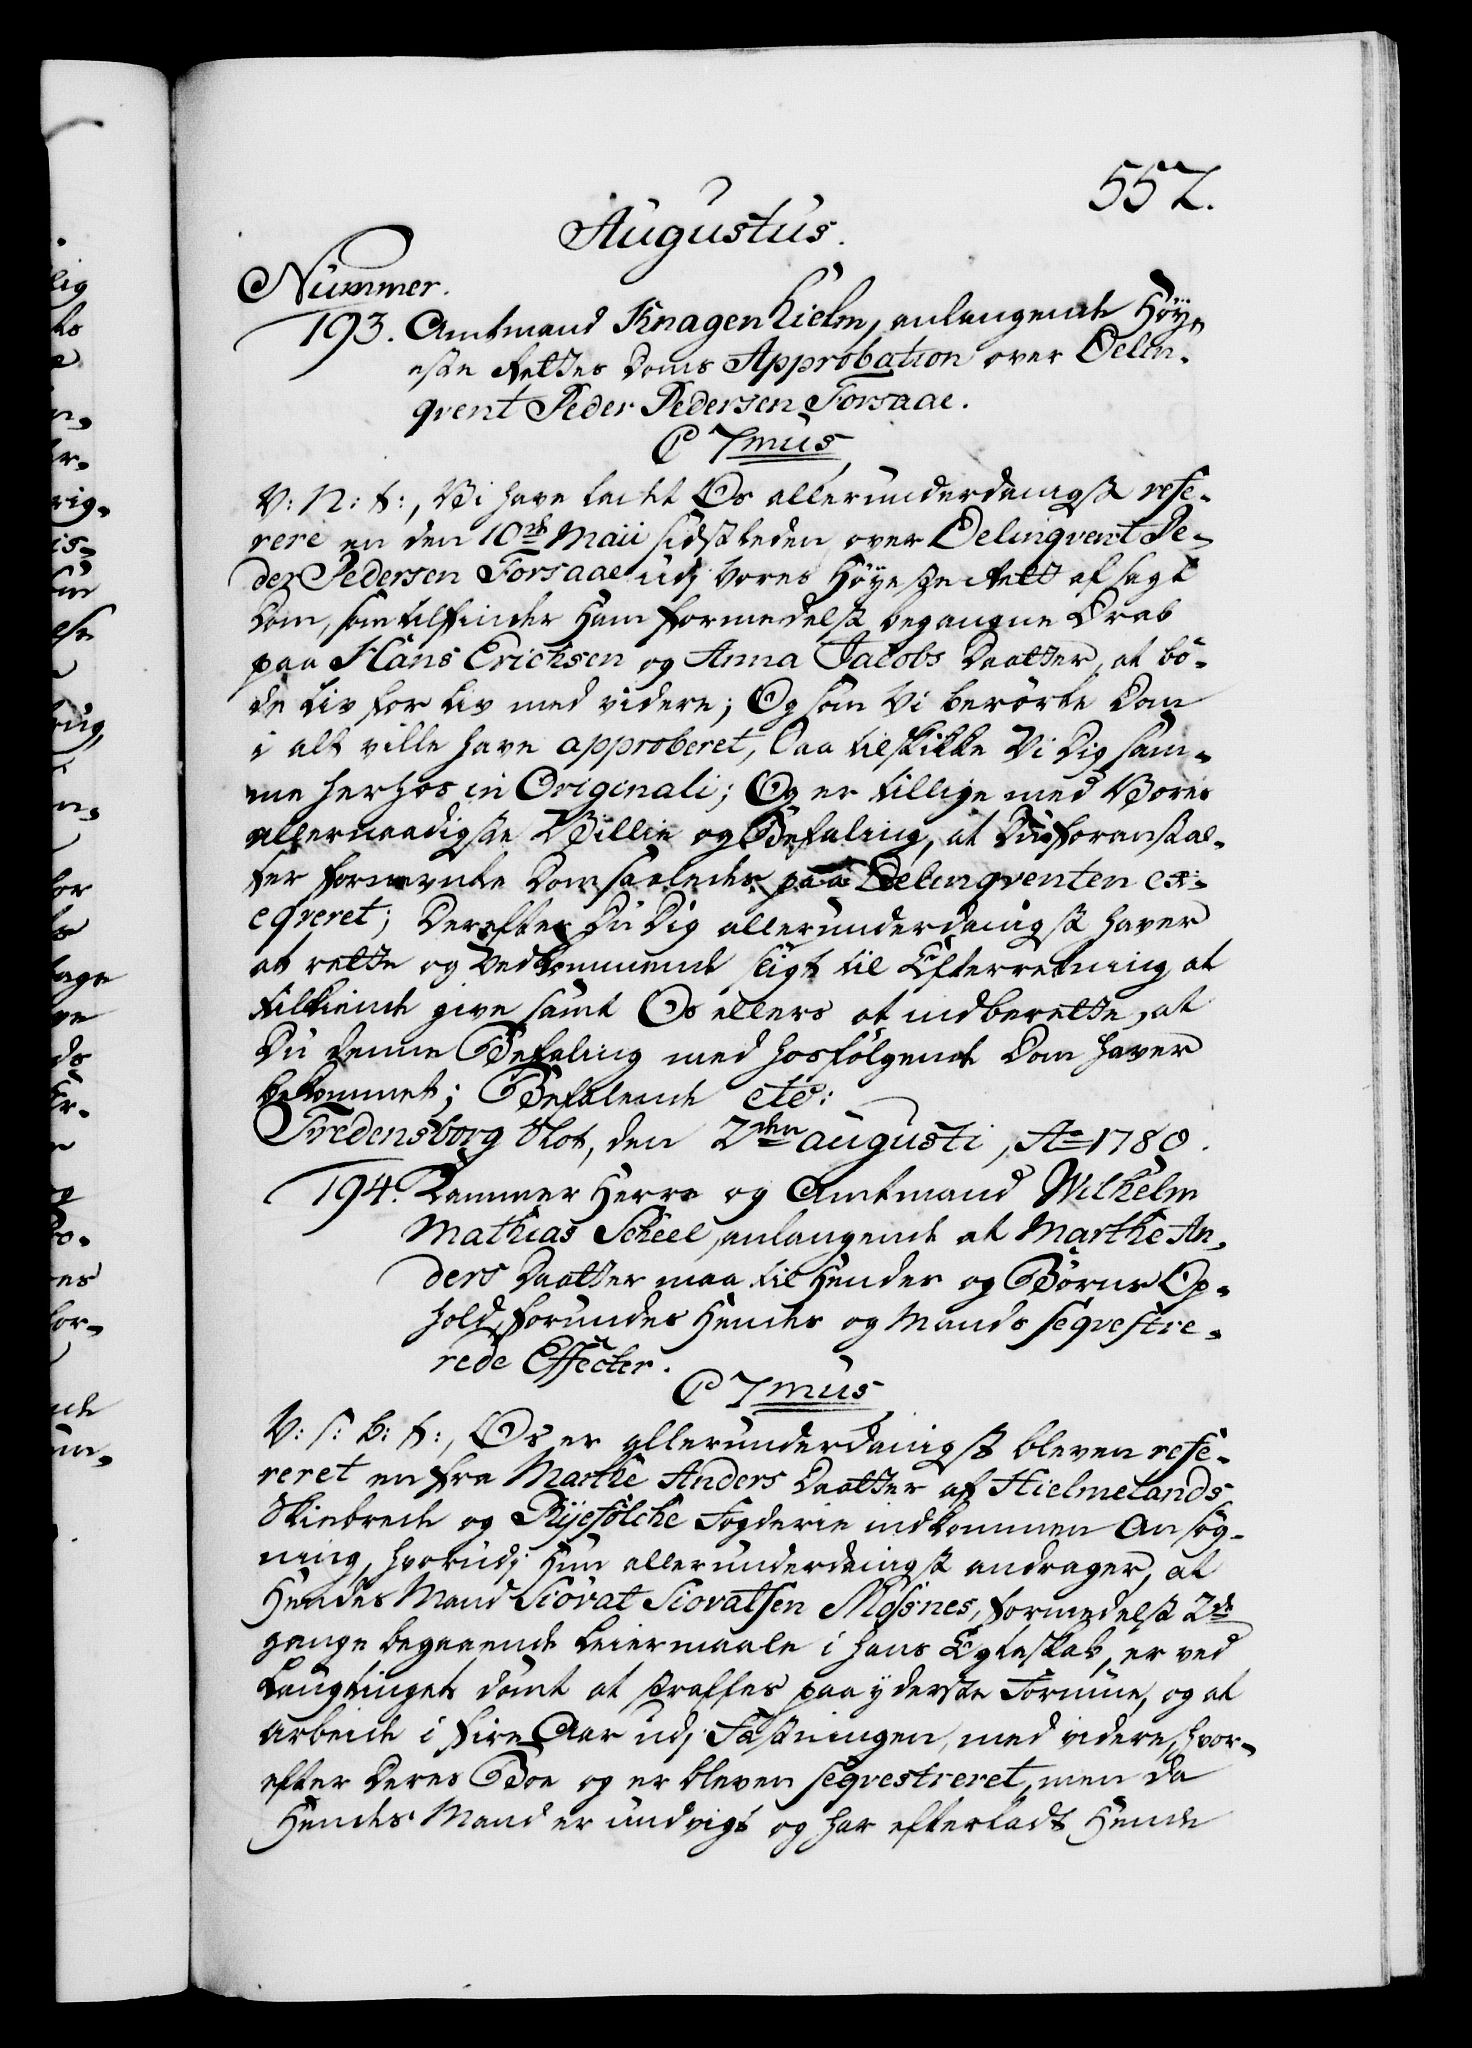 557.
Augustus.
Nummer.
193. Amtmand Knagenhielm, anlangende Høye
ste Rettes Doms Approbation over Delin-
qvent Peder Pedersen Forsaae.
C 7mus
V: N: t:, Vi have ladet Os allerunderdanigst refe-
rere en den 10de Maii sidstleden over Delinqvent Pe-
der Pedersen Forsaae udj Vores Høyeste Rett afsagt
Dom, som tilfinder Ham formedelst begangne Drab
paa Hans Erichsen og Anna Jacobs Daatter, at bö-
de Liv for Liv med videre; Og som Vi berörte Dom
i alt ville have approberet, Saa tilskikke Vi Dig sam-
me herhos in Originali; Og er tillige med Vores
allernaadigste Villie og Befaling, at Du foranstal-
ter fornevnte Dom saaledes paa Delinqventen ex-
eqveret; Derefter Du Dig allerunderdanigst haver
at rette og Vedkommende sligt til Efterretning at
tilkiende give samt Os ellers at indberette, at
Du denne Befaling med hosfölgende Dom haver
bekommet; Befalende etc:
Fredensborg Slot, den 2den augusti, Ao 1780.
194. Kammer Herre og Amtmand Wilhelm
Mathias Scheel, anlangende at Marthe An-
ders Daatter maa til Hendes og Börns Op-
hold, forundes Hendes og Mands seqvestre-
rede Effecter.
C 7mus
V: s: b: t:, Os er allerunderdanigst bleven refe-
reret en fra Marthe Anders Daatter af Hielmelands
Skibrede og Ryefölche Fogderie indkommen Ansög-
ning, hvorudj Hun allerunderdanigst andrager, at
Hendes Mand Siovat Siovatsen Mosnes, formedelst 2de
gange begaaende Leiermaale i hans Egteskab, er ved
Laugtinget dömt at straffes paa yderste Formue, og at
arbeide i fire Aar udj Fæstningen, med videre, hvor-
efter Deres Boe og er bleven seqvestreret, men da
Hendes Mand er undvigt og har efterladt Hende